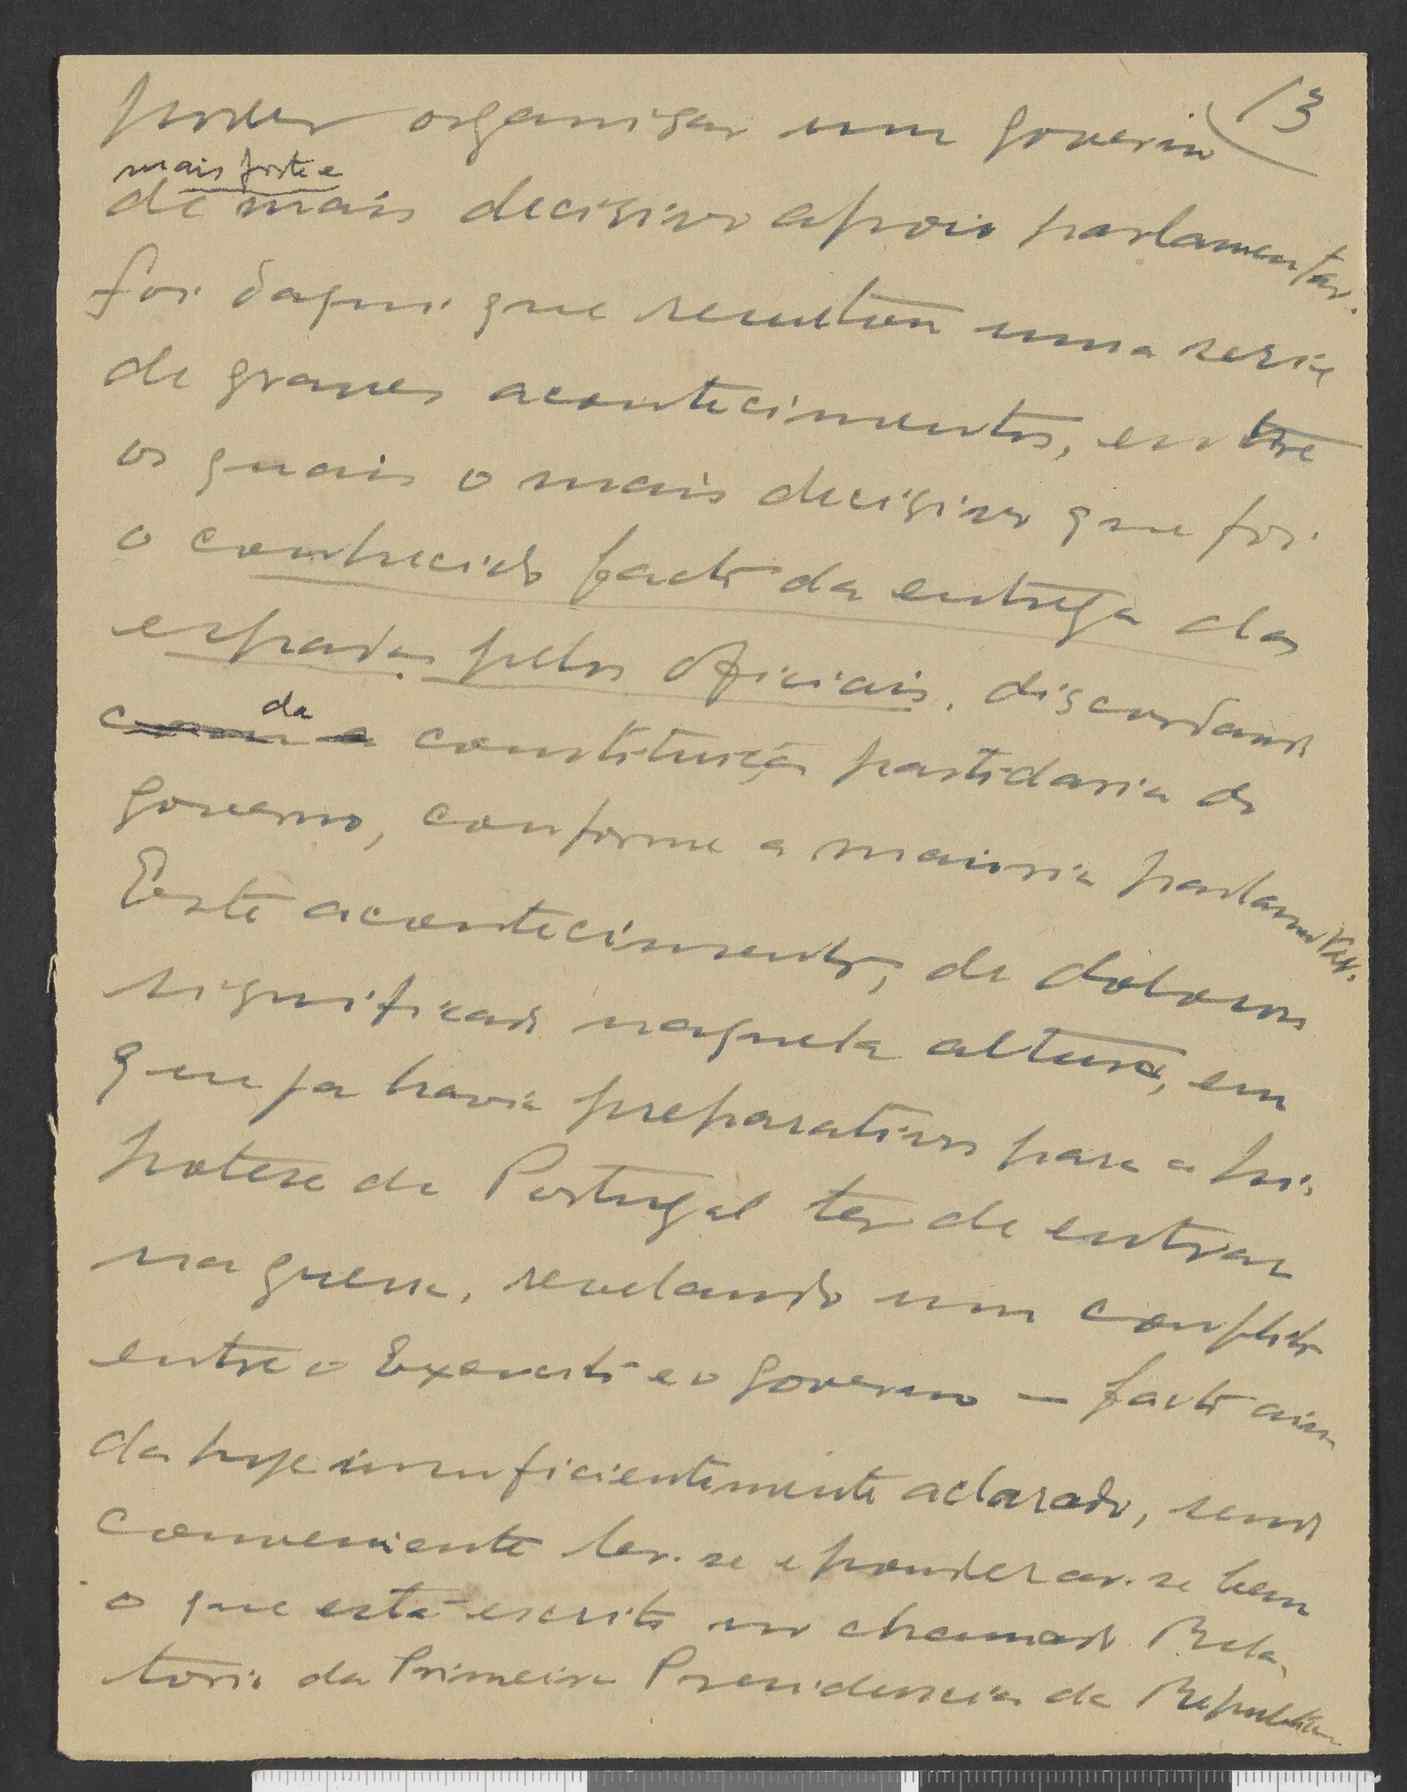 13
poder organisar um governo
mais forte e
de mais decisivo apoio parlamentar.
foi daqui que resultou uma serie
de graves acontecimentos, entre
os quais o mais decisivo que foi
o conhecido facto da entrega das
espadas pelos oficiais, discordando
da
com a constituição partidaria do
governo, conforme a maioria parlamentar.
Este acontecimento, de doloroso
significado naquela altura, em
que ja havia preparativos para a hi-
potese de Portugal ter de entrar
na guerra, revelando um conflito
entre o Exercito e o governo — facto ain
da hoje insuficientemente aclarado, sendo
conveniente ler-se e ponderar-se bem
o que está escrito no chamado Rela-
torio da Primeira Presidencia da Republica